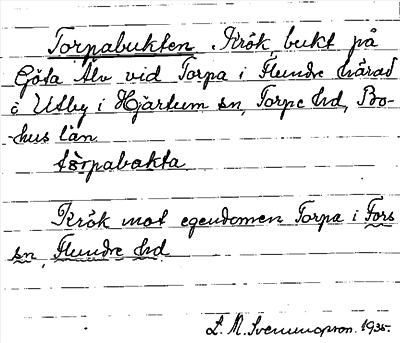 Torpabukten. Krök, bukt på
Göta Älv vid Torpa i Flundre härad
o Utby i Hjärtum sn, Torpe hd, Bo-
hus län
tòrpabokta
Krök mot egendomen Torpa i Fors
sn, Flundre hd
L. M. Svenungsson. 1935.